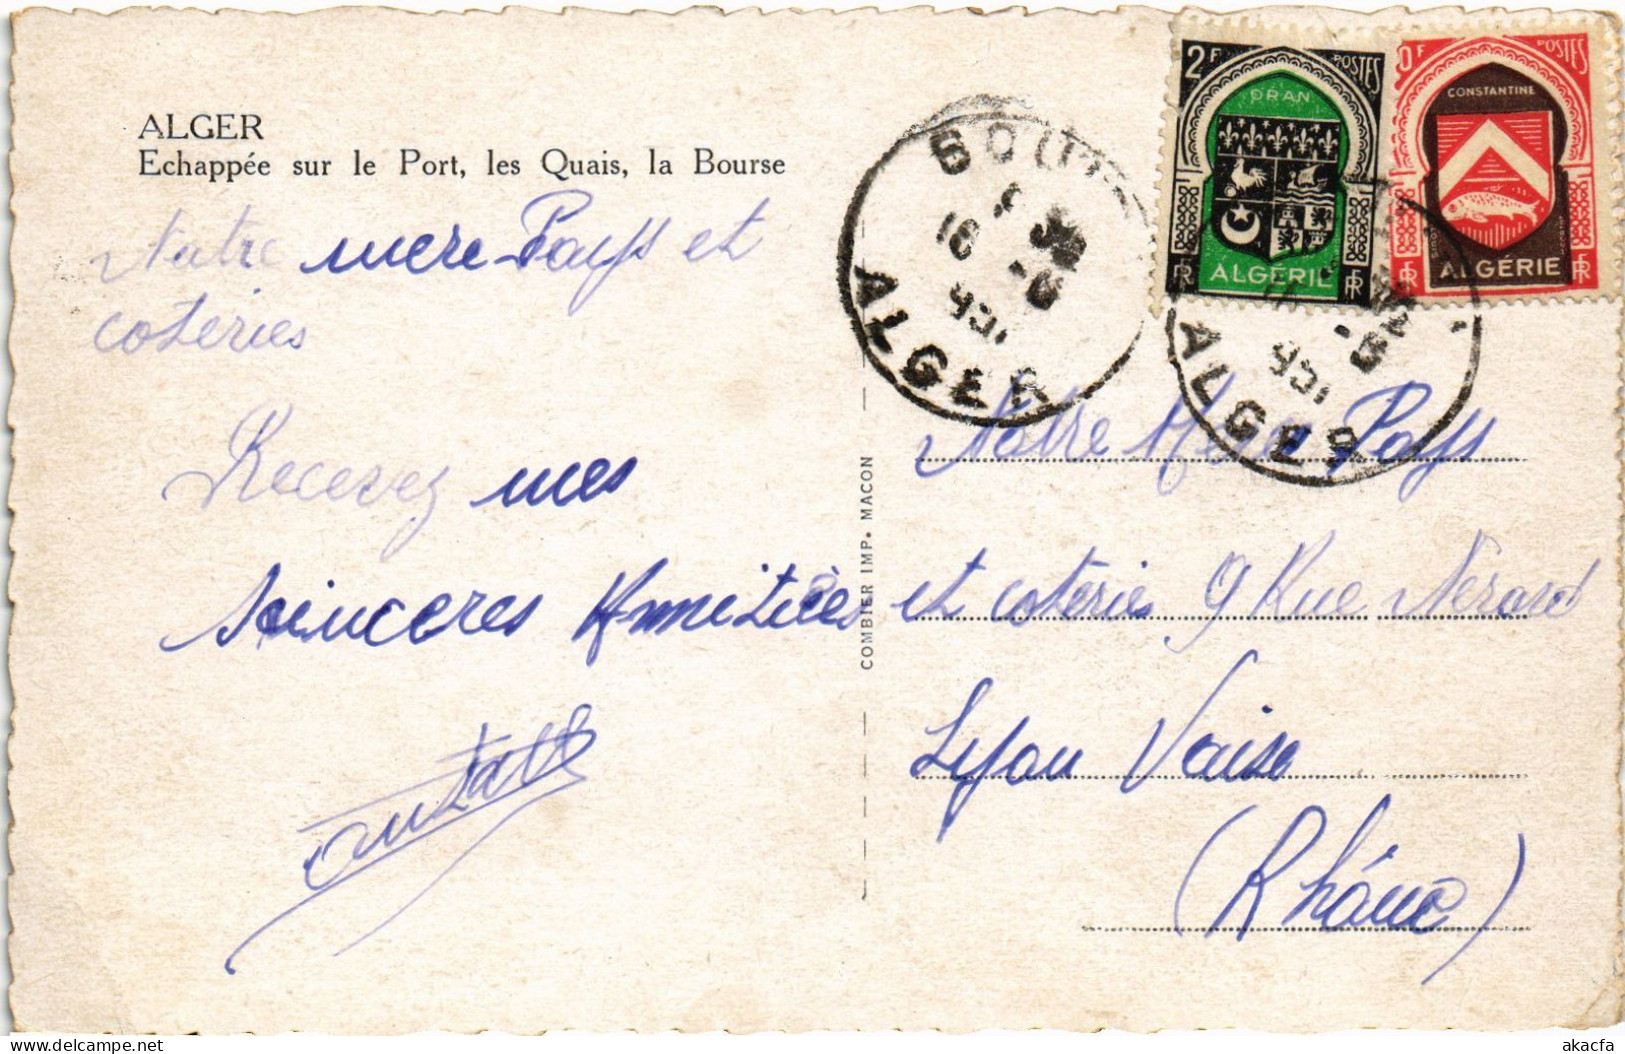 ALGER
Echappée sur le Port, les Quais, la Bourse
Notre mere Pays et
coteries
Recevez mes
sinceres Amitiées
COMBIER IMP. MACON
2F POSTES
ORAN
ALGÉRIE
RF RF
0F POSTES
CONSTANTINE
ALGÉRIE
RF RF
16 -5
ALGER
16 -5
ALGER
Notre Mere Pays
et coteries 9 Rue Nérard
Lyon Vaise
(Rhône)
akacfa